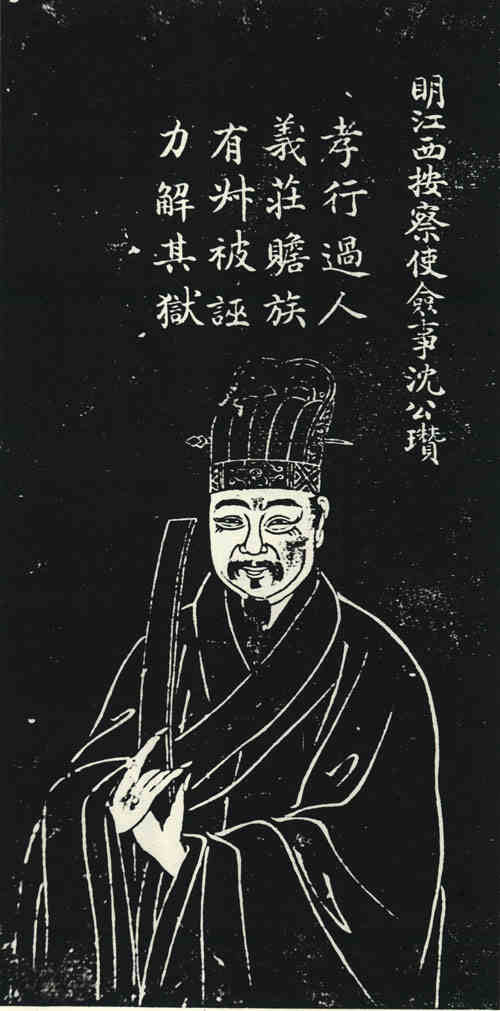 明江西按察使僉事沈公瓚
孝行過人
義莊贍族
有艸被誣
力解其獄